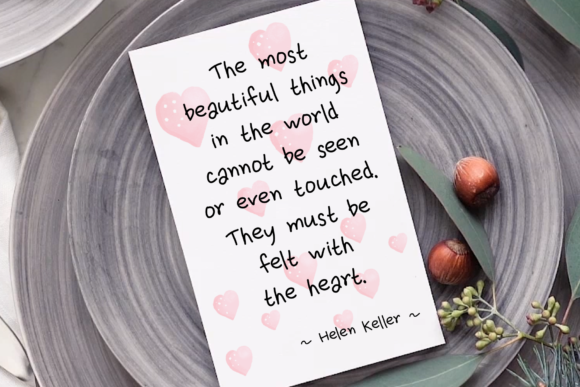 The most
beautiful things
in the world
cannot be seen
or even touched.
They must be
felt with
the heart.
~ Helen Keller ~